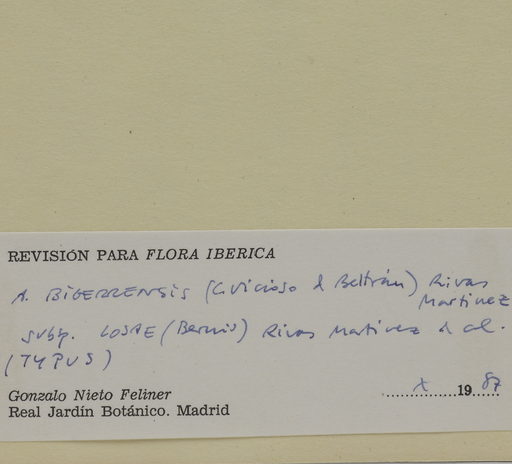 REVISIÓN PARA FLORA IBERICA
A. BIGERRENSIS (C. Vicioso & Beltrán) Rivas
Martinez
subsp. LOSAE (Bernis) Rivas Martinez & al.
(TYPUS)
Gonzalo Nieto Feliner
X 19 87
Real Jardín Botánico. Madrid